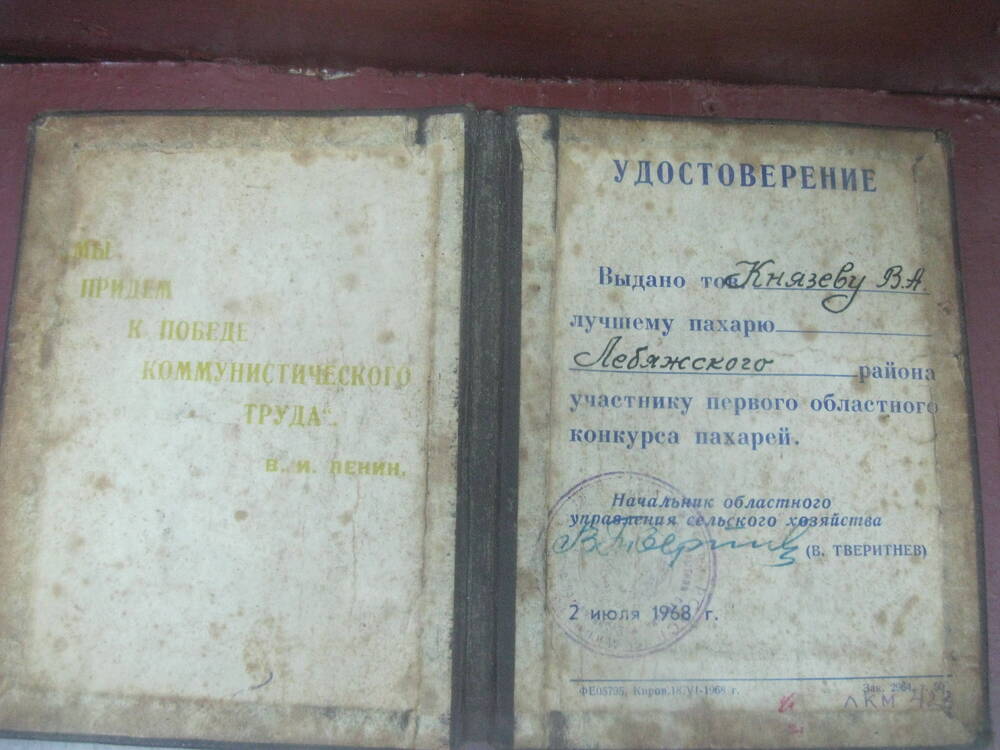 МЫ
ПРИДЕМ
К ПОБЕДЕ
КОММУНИСТИЧЕСКОГО
ТРУДА".
В. И. ЛЕНИН.
УДОСТОВЕРЕНИЕ
Выдано тов. Князеву В.А.
лучшему пахарю
Лебяжского района
участнику первого областного
конкурса пахарей.
Начальник областного
управления сельского хозяйства
(В. ТВЕРИТНЕВ)
2 июля 1968 г.
ФЕ05795, Киров, 18/VI-1968 г. Зак.
ЛКМ